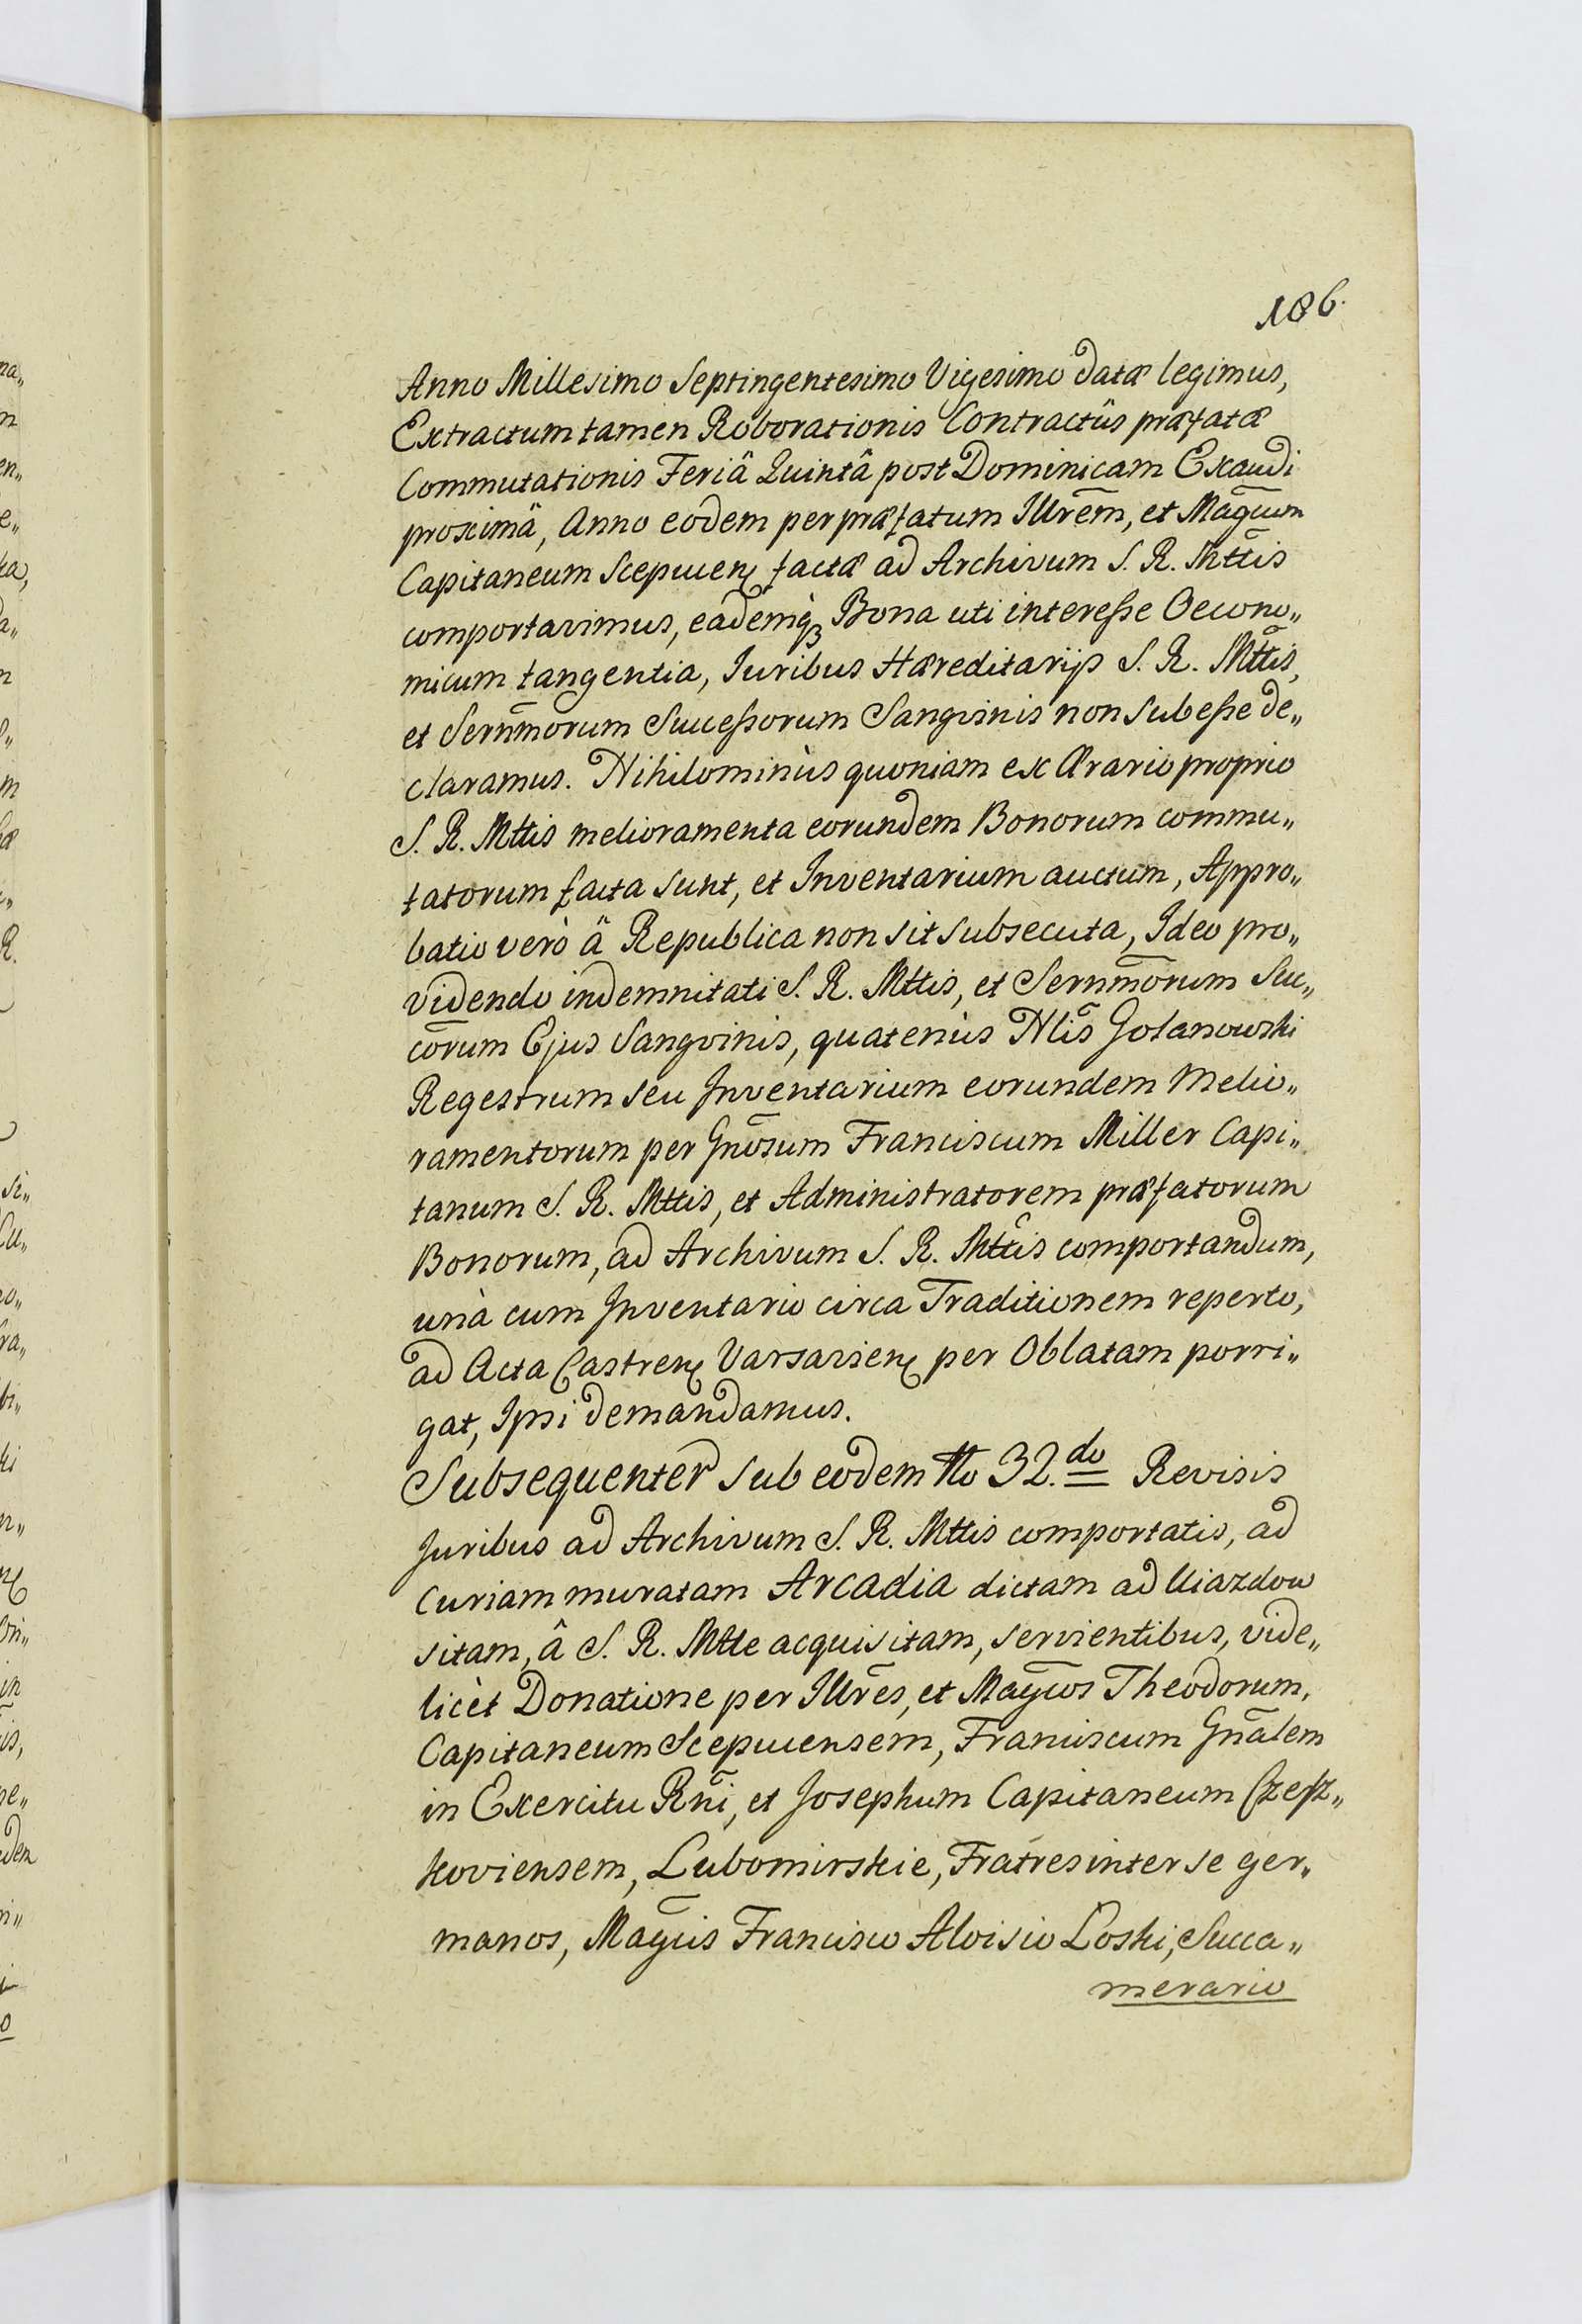 186.
Anno Millesimo Septingentesimo Vigesimo datæ legimus,
Extractum tamen Roborationis Contractûs præfatæ
Commutationis Feriâ Quintâ post Dominicam Exaudi
proximâ, Anno eodem per præfatum Illrēm, et Magcum
Capitaneum Scepucen̄ factæ ad Archivum S. R. Mttis
comportavimus, eademq3 Bona uti interesse Oecono„
micum tangentia, Iuribus Hæreditarijs S. R. Mttis,
et Sernm̄orum Successorum Sangvinis non Subesse de„
claramus. Nihilominùs quoniam ex Ærario proprio
S. R. Mttis melioramenta eorundem Bonorum commu„
tatorum facta sunt, et Inventarium auctum, Appro„
batio verò â Republica non sit subsecuta, Ideo pro„
videndo indemnitati S. R. Mttis, et Sernm̄orum Suc„
corum Ejus Sangvinis, quatenùs Nlis Golanowski
Regestrum seu Inventarium eorundem Melio„
ramentorum per Gnōsum Franciscum Miller Capi„
tanum S. R. Mttis, et Administratorem præfatorum
Bonorum, ad Archivum S. R. Mttis comportandum,
unà cum Inventario circa Traditionem reperto,
ad Acta Castren̄ Varsavien̄ per Oblatam porri„
gat, Ipsi demandamus.
Subsequenter sub eodem No 32.do Revisis
Juribus ad Archivum S. R. Mttis comportatis, ad
Curiam muratam Arcadia dictam ad Uiazdow
sitam, â S. R. Mtte acquisitam, servientibus, vide„
licèt Donatione per Illrēs, et Magcos Theodorum,
Capitaneum Scepucensem, Franciscum Gnālem
in Exercitu Rni, et Josephum Capitaneum Czesz„
koviensem, Lubomirskie, Fratres inter se ger„
manos, Magcis Francisco Aloisio Loski, Succa„
merario